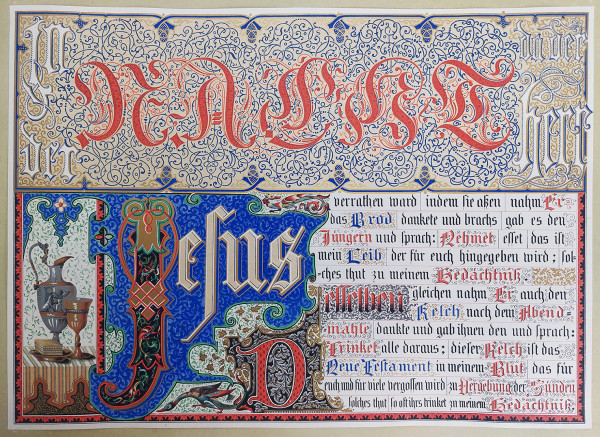 In
der
NACHT
da der
Herr
Jesus
verrathen ward indem sie aßen nahm Er
das Brod dankete und brachs gab es den
Jüngern und sprach: Nehmet esset das ist
mein Leib der für euch hingegeben wird; sol-
ches thut zu meinem Gedächtniß.
Desselben gleichen nahm Er auch den
Kelch nach dem Abend-
mahle dankte und gab ihnen den und sprach:
Trinket alle daraus; dieser Kelch ist das
Neue Testament in meinem Blut das für
euch und für viele vergossen wird zu Vergebung der Sünden
solches thut so oft ihrs trinket zu meinem Gedächtniß.